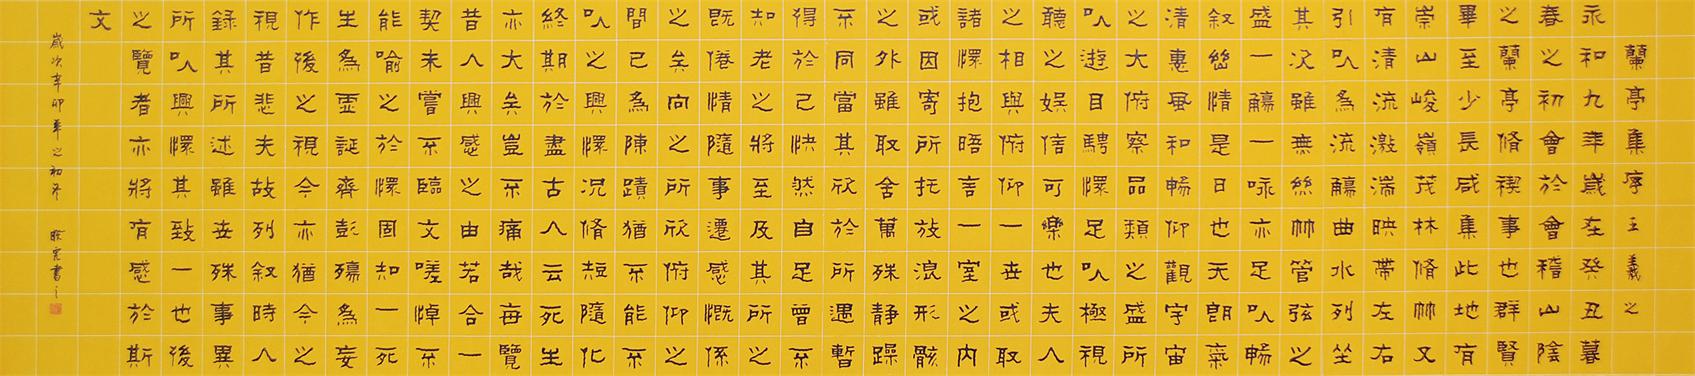 蘭亭集序 王羲之
永和九年歲在癸丑暮
春之初會於會稽山陰
之蘭亭脩禊事也群賢
畢至少長咸集此地有
崇山峻嶺茂林脩竹又
有清流激湍映帶左右
引以為流觴曲水列坐
其次雖無絲竹管弦之
盛一觴一咏亦足以暢
敘幽情是日也天朗氣
清惠風和暢仰觀宇宙
之大俯察品類之盛所
以遊目騁懷足以極視
聽之娛信可樂也夫人
之相與俯仰一世或取
諸懷抱晤言一室之內
或因寄所托放浪形骸
之外雖取舍萬殊静躁
不同當其欣於所遇暫
得於己快然自足曾不
知老之將至及其所之
既倦情隨事遷感慨係
之矣向之所欣俯仰之
間已為陳蹟猶不能不
以之興懷況脩短隨化
終期於盡古人云死生
亦大矣豈不痛哉每覽
昔人興感之由若合一
契未嘗不臨文嗟悼不
能喻之於懷固知一死
生為虛誕齊彭殤為妄
作後之視今亦猶今之
視昔悲夫故列敘時人
錄其所述雖世殊事異
所以興懷其致一也後
之覽者亦將有感於斯
文
歲次辛卯年之初冬 書之